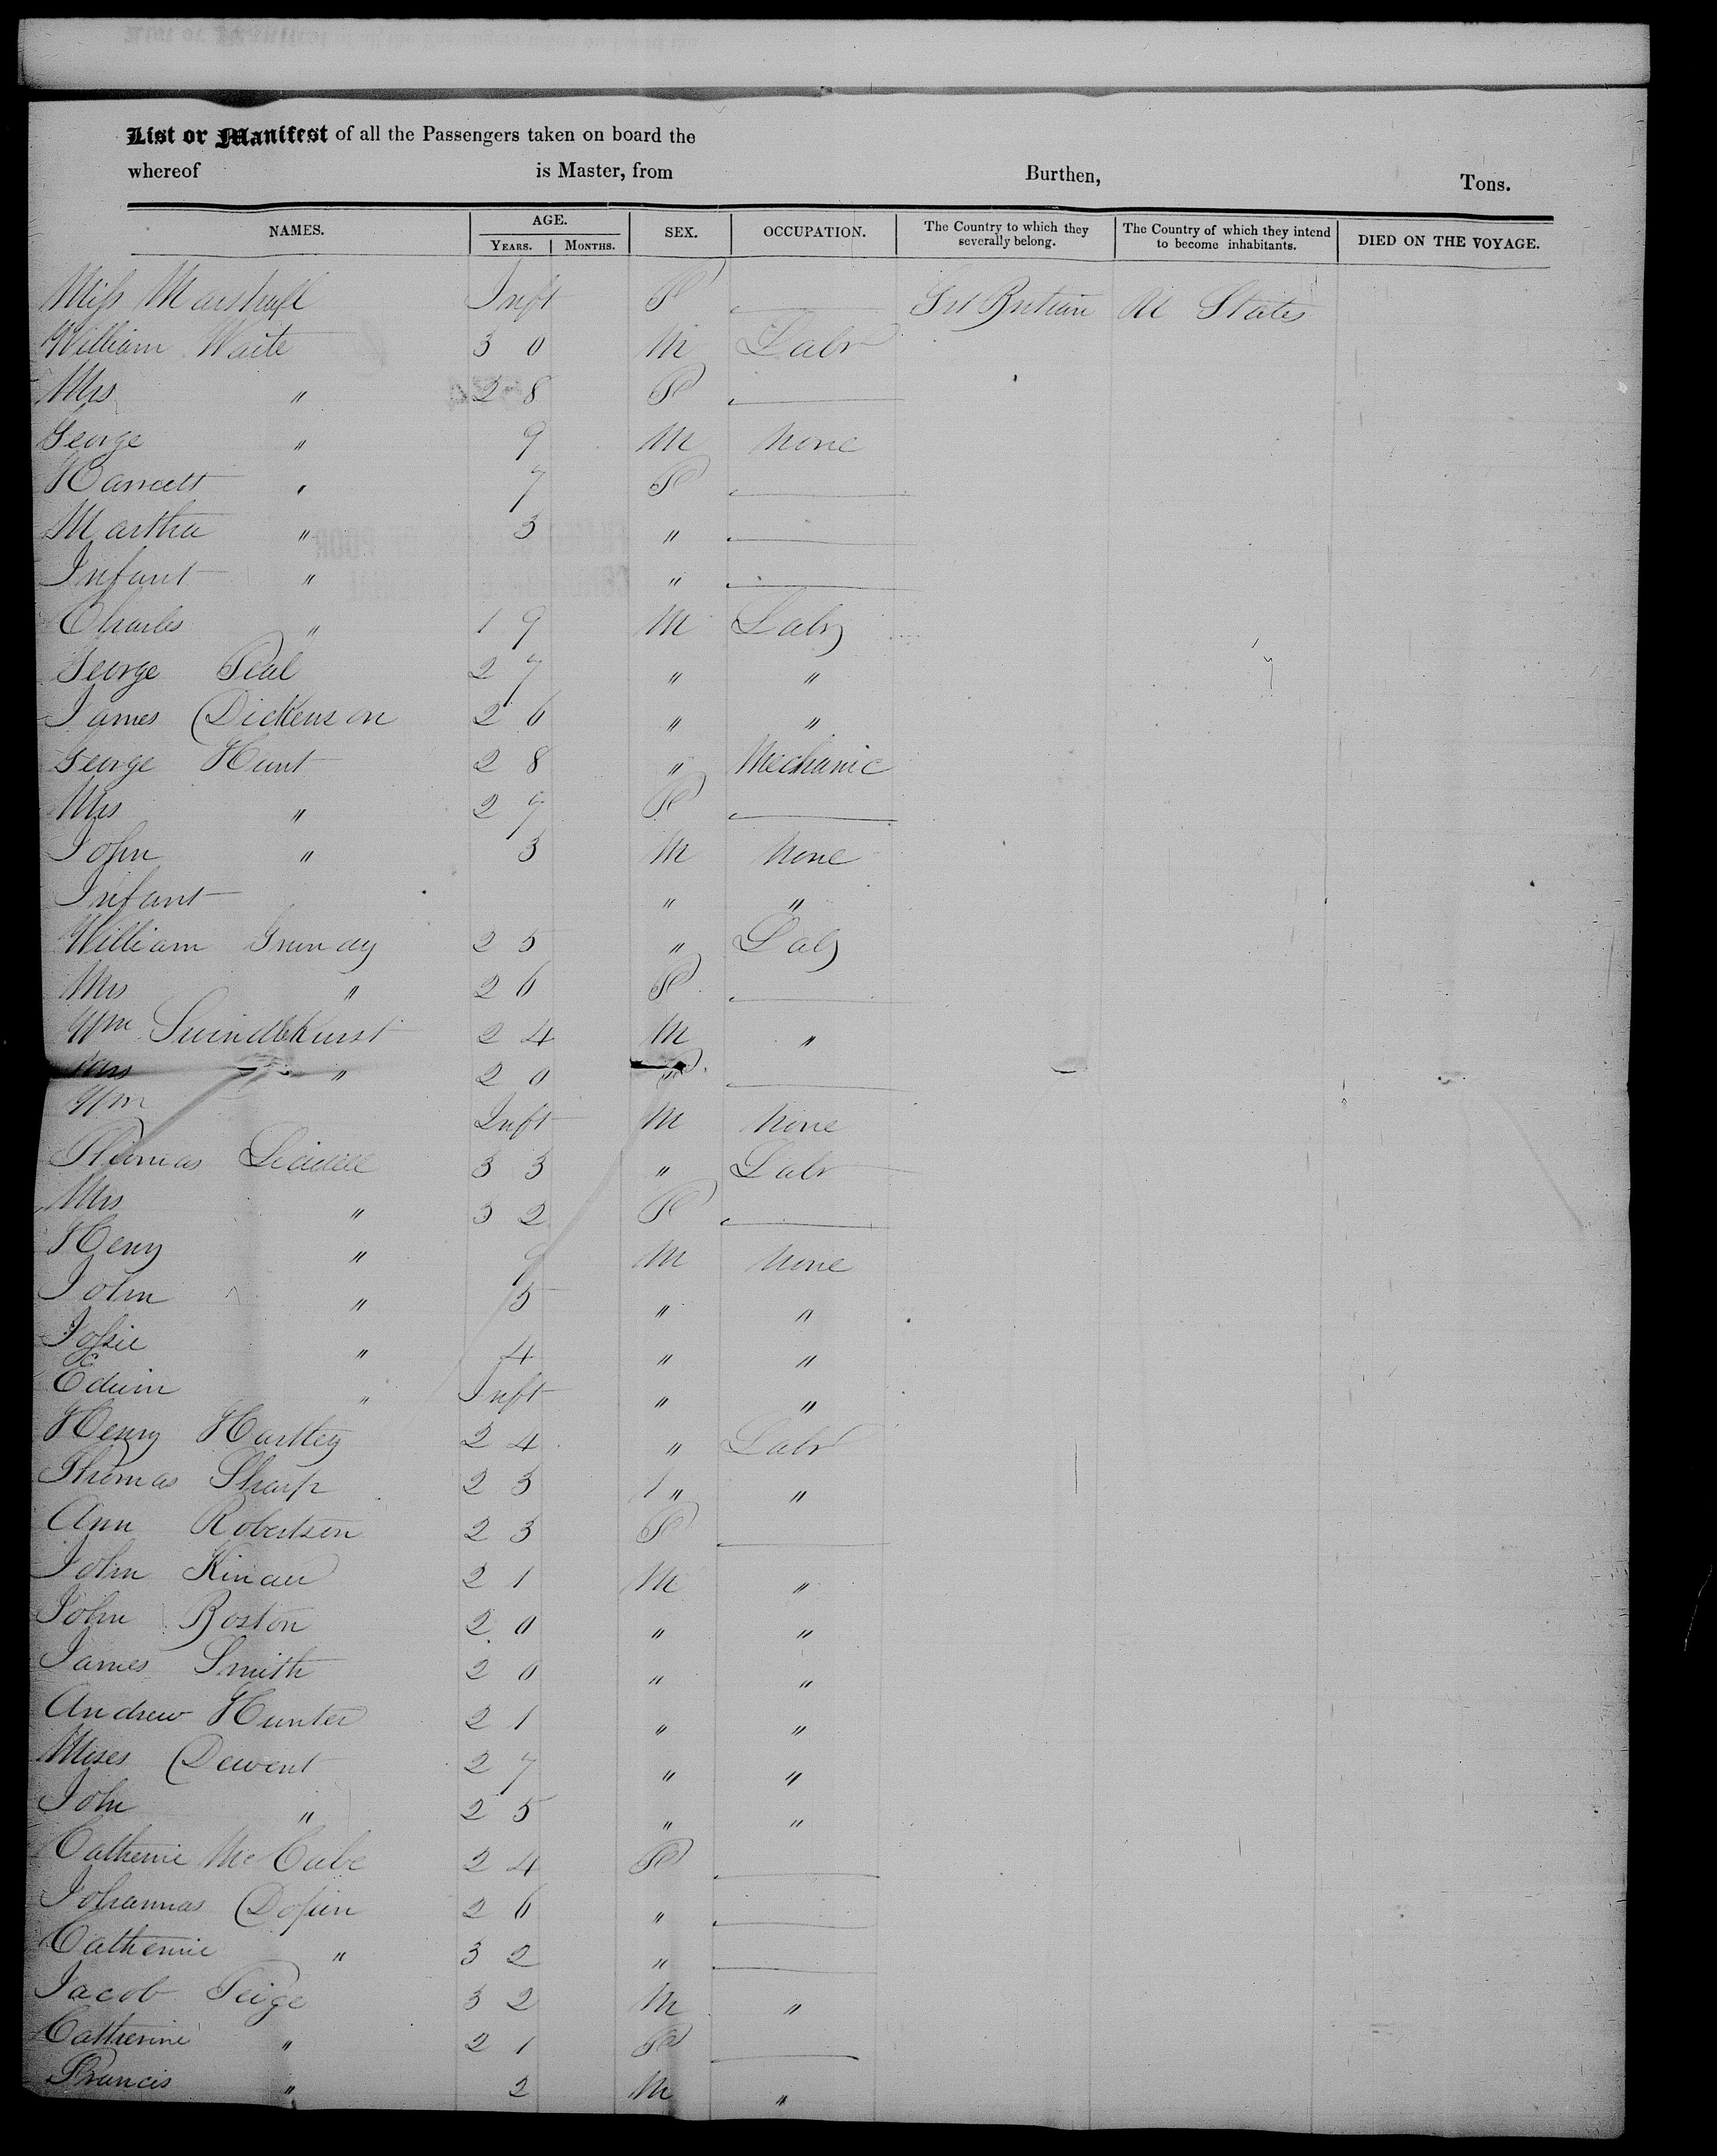 List or Manifest of all the Passengers taken on board the
whereof is Master, from Burthen, Tons.
NAMES. AGE. YEARS. MONTHS. SEX. OCCUPATION. The Country to which they severally belong. The Country of which they intend to become inhabitants. DIED ON THE VOYAGE.
Miss Marshall Inft F — Grt Britain U States
William Waite 30 M Labr
Mrs " 28 F —
George " 9 M None
Harriett " 7 F —
Martha " 3 " —
Infant " " —
Charles " 19 M Labr
George Peal 27 " "
James Dickenson 26 " "
George Hunt 28 " Mechanic
Mrs " 27 F —
John " 3 M None
Infant " "
William Grunday 25 " Labr
Mrs " 26 F —
Wm Swindlehurst 24 M "
Mrs " 20 F —
Wm Inft M None
Thomas 33 " Labr
Mrs " 32 F —
Henry " 9 M None
John " 5 " "
" 4 " "
Edwin " Inft " "
Henry Hartley 24 " Labr
Thomas Sharp 23 " "
Ann Robertson 23 F —
John 21 M "
John Boston 20 " "
James Smith 20 " "
Andrew Hunter 21 " "
Moses Dewent 27 " "
John " 25 " "
Catherine McCabe 24 F —
Johannas 26 " —
Catherine " 32 " —
Jacob Peige 32 M "
Catherine " 21 F —
Francis " 2 M "